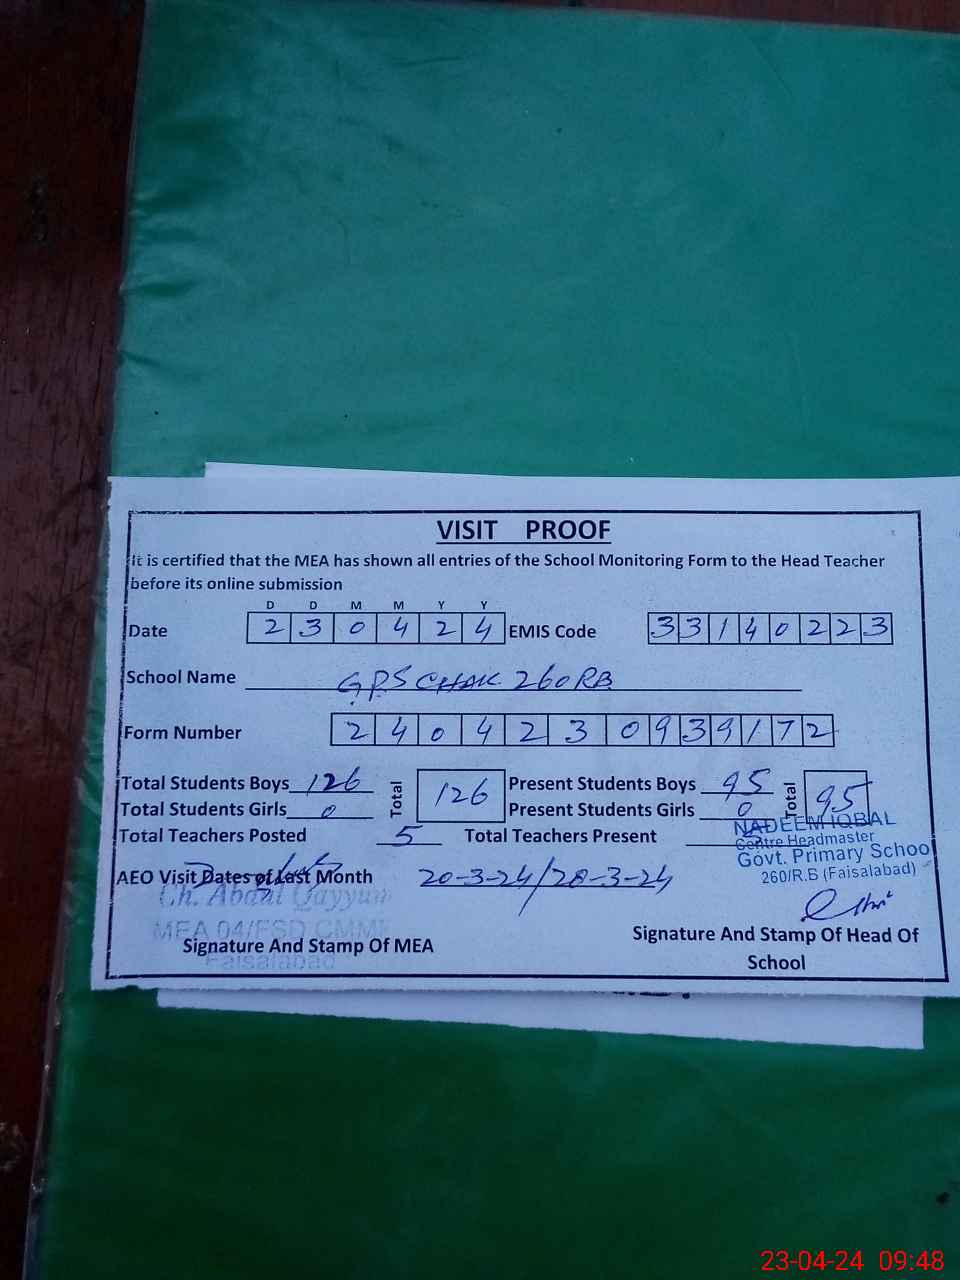 VISIT PROOF
It is certified that the MEA has shown all entries of the School Monitoring Form to the Head Teacher
before its online submission
D D M M Y Y
Date 2 3 0 4 2 4 EMIS Code 3 3 1 4 0 2 2 3
School Name GPS CHAK 260 RB
Form Number 2 4 0 4 2 3 0 9 3 9 1 7 2
Total Students Boys 126 Total 126 Present Students Boys 95 Total 95
Total Students Girls 0 Present Students Girls 0
Total Teachers Posted 5 Total Teachers Present 5
NADEEM IQBAL
Centre Headmaster
Govt. Primary Schoo
260/R.B (Faisalabad)
AEO Visit Dates of Last Month 20-3-24/28-3-24
Ch. Abdul Qayyum
MEA 04/FSD CMMF
Faisalabad
Signature And Stamp Of MEA
Signature And Stamp Of Head Of
School
23-04-24 09:48